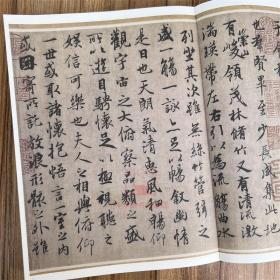 也群賢畢至少長咸集此地
有崇山峻領茂林脩竹又有清流激
湍暎帶左右引以為流觴曲水
列坐其次雖無絲竹管弦之
盛一觴一詠亦足以暢敘幽情
是日也天朗氣清惠風和暢仰
觀宇宙之大俯察品類之盛
所以遊目騁懷足以極視聽之
娛信可樂也夫人之相與俯仰
一世或取諸懷抱悟言一室之內
或因寄所託放浪形骸之外雖